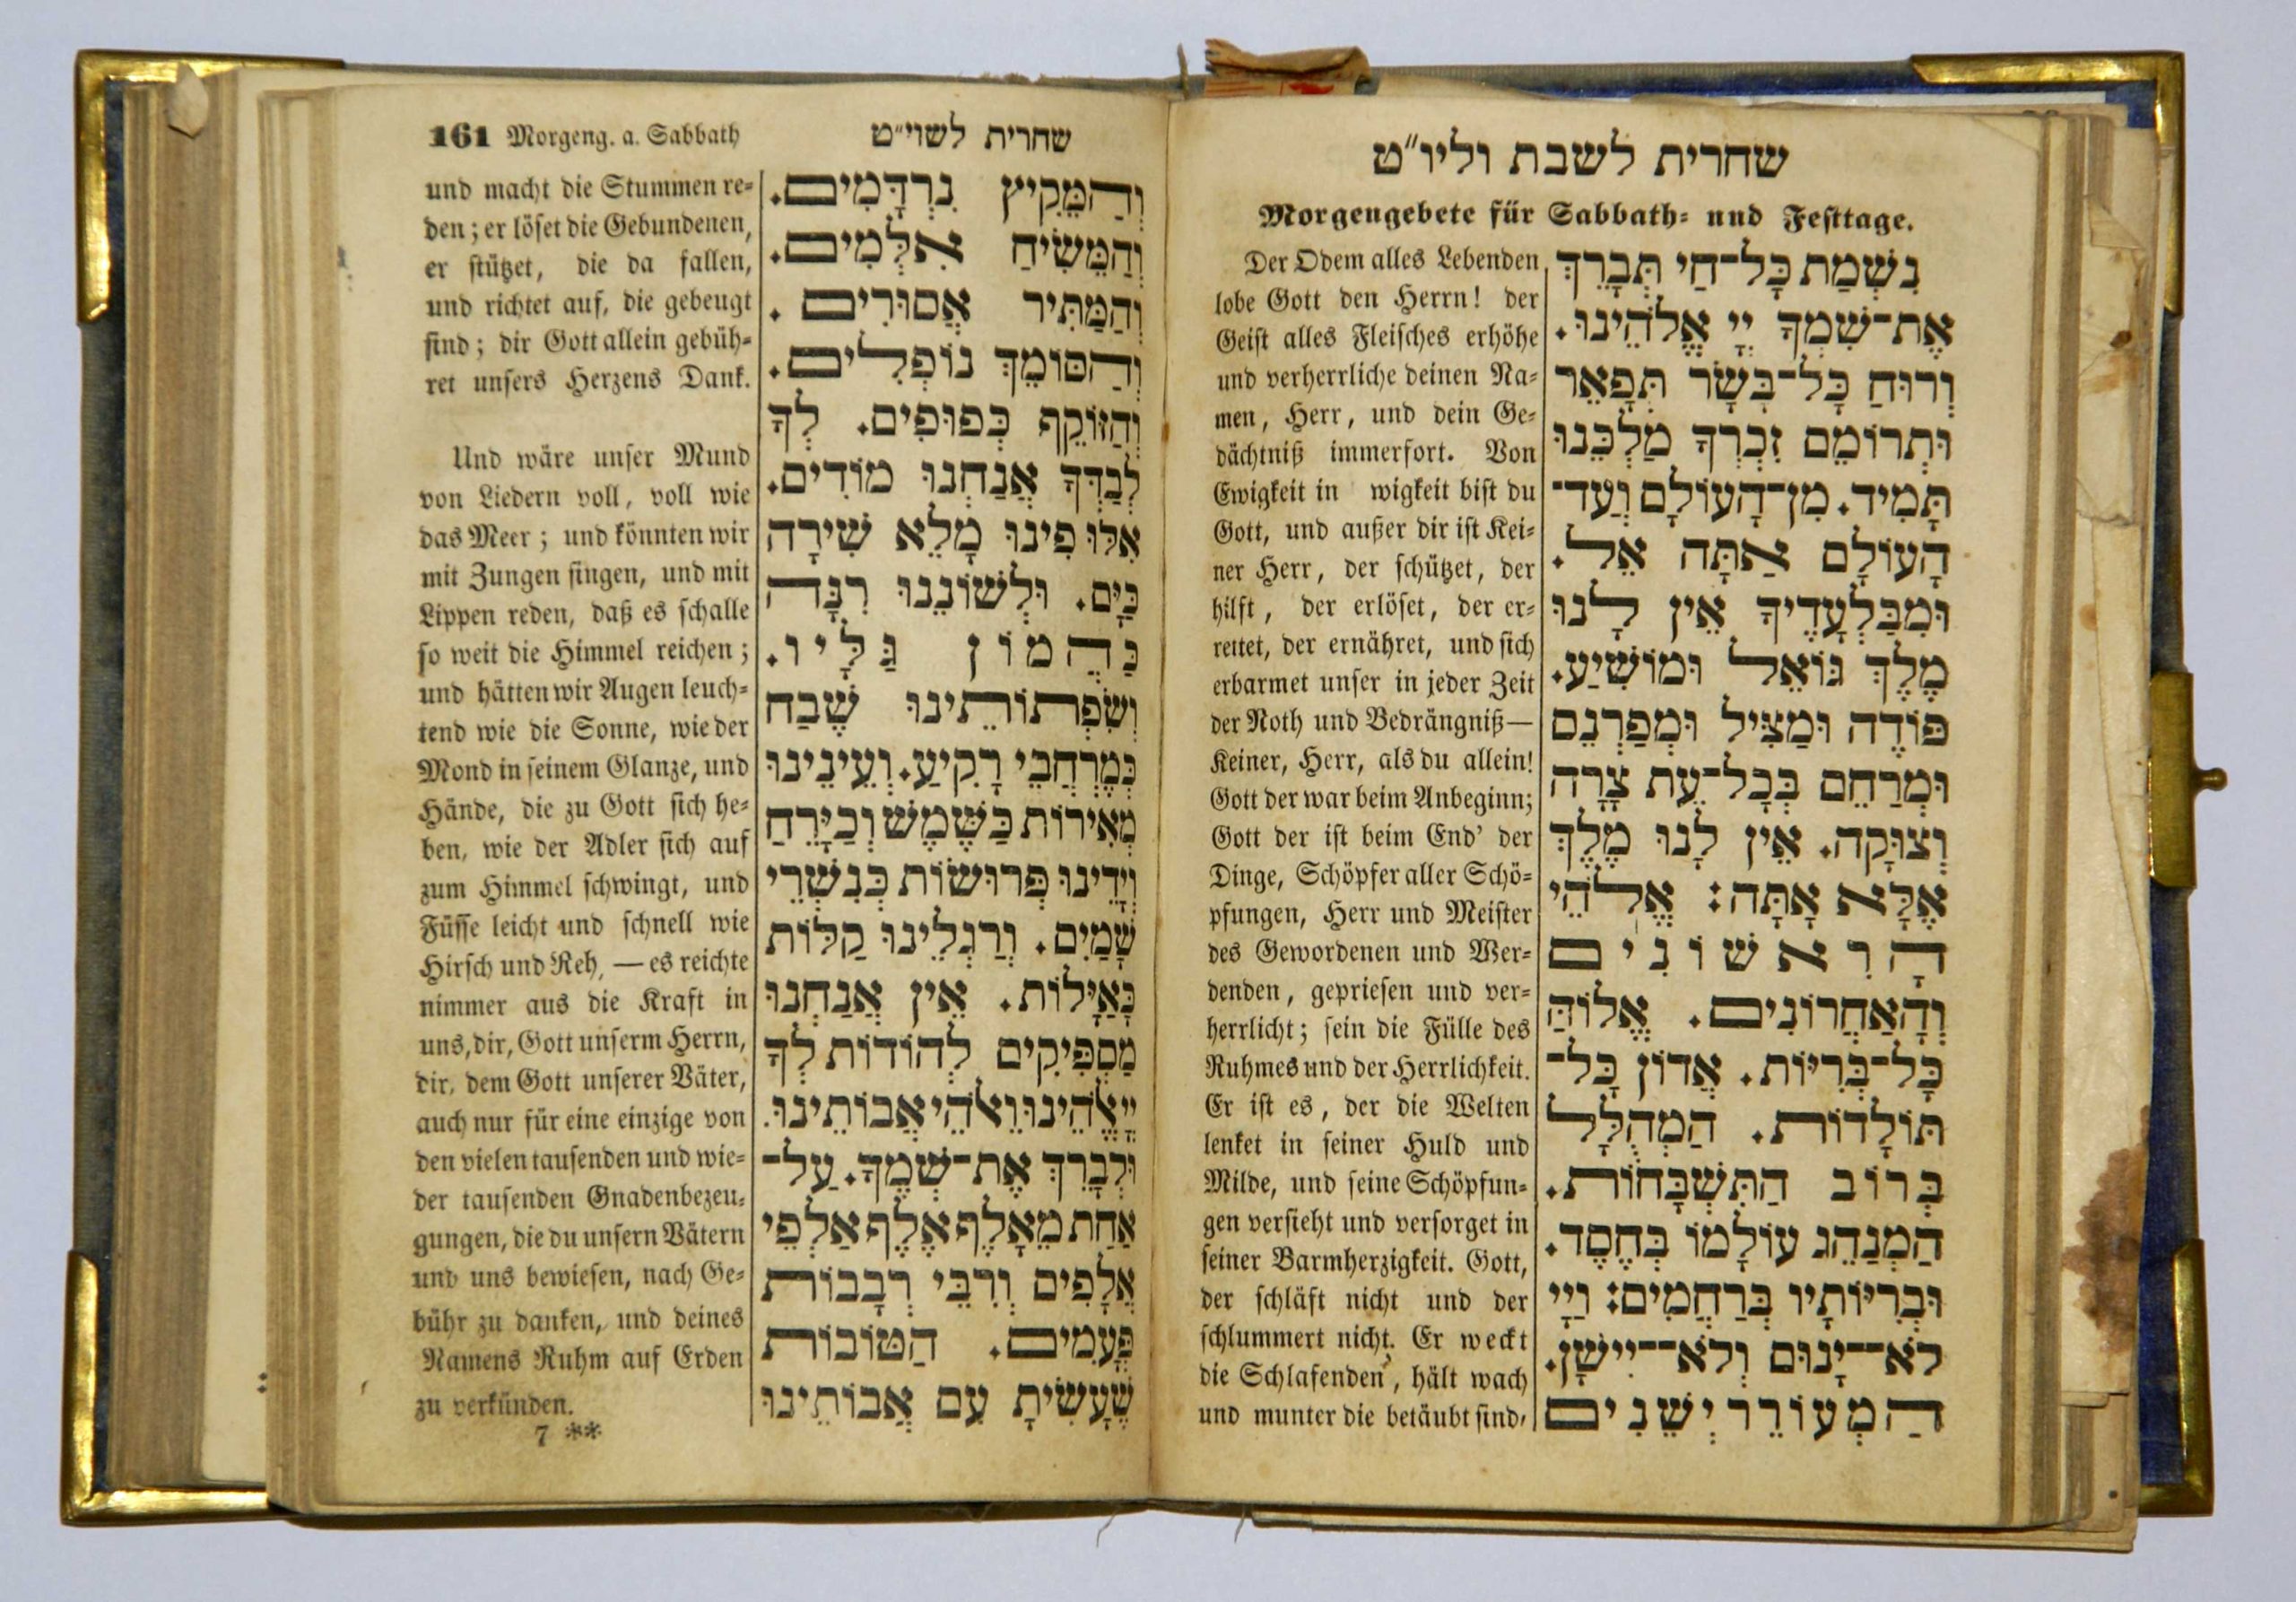 שחרית לשבת וליו״ט
Morgengebete für Sabbath- und Festtage.
נִשְׁמַת כָּל־חַי תְּבָרֵךְ
אֶת־שִׁמְךָ יְיָ אֱלֹהֵינוּ.
וְרוּחַ כָּל־בָּשָׂר תְּפָאֵר
וּתְרוֹמֵם זִכְרְךָ מַלְכֵּנוּ
תָּמִיד. מִן־הָעוֹלָם וְעַד־
הָעוֹלָם אַתָּה אֵל.
וּמִבַּלְעָדֶיךָ אֵין לָנוּ
מֶלֶךְ גּוֹאֵל וּמוֹשִׁיעַ.
פּוֹדֶה וּמַצִּיל וּמְפַרְנֵס
וּמְרַחֵם בְּכָל־עֵת צָרָה
וְצוּקָה. אֵין לָנוּ מֶלֶךְ
אֶלָּא אָתָּה: אֱלֹהֵי
הָרִאשׁוֹנִים
וְהָאַחֲרוֹנִים. אֱלוֹהַּ
כָּל־בְּרִיּוֹת. אֲדוֹן כָּל־
תּוֹלָדוֹת. הַמְהֻלָּל
בְּרוֹב הַתִּשְׁבָּחוֹת.
הַמְנַהֵג עוֹלָמוֹ בְּחֶסֶד.
וּבְרִיּוֹתָיו בְּרַחֲמִים: וַיְיָ
לֹא־יָנוּם וְלֹא־יִישָׁן.
הַמְעוֹרֵר יְשֵׁנִים
Der Odem alles Lebenden
lobe Gott den Herrn! der
Geist alles Fleisches erhöhe
und verherrliche deinen Na-
men, Herr, und dein Ge-
dächtniß immerfort. Von
Ewigkeit in wigkeit bist du
Gott, und außer dir ist Kei-
ner Herr, der schützet, der
hilft, der erlöset, der er-
rettet, der ernähret, und sich
erbarmet unser in jeder Zeit
der Noth und Bedrängniß—
Keiner, Herr, als du allein!
Gott der war beim Anbeginn;
Gott der ist beim End' der
Dinge, Schöpfer aller Schö-
pfungen, Herr und Meister
des Gewordenen und Wer-
denden, gepriesen und ver-
herrlicht; sein die Fülle des
Ruhmes und der Herrlichkeit.
Er ist es, der die Welten
lenket in seiner Huld und
Milde, und seine Schöpfun-
gen versieht und versorget in
seiner Barmherzigkeit. Gott,
der schläft nicht und der
schlummert nicht. Er weckt
die Schlafenden, hält wach
und munter die betäubt sind,
שחרית לשוי״ט
161 Morgeng. a. Sabbath
וְהַמֵּקִיץ נִרְדָּמִים.
וְהַמֵּשִׂיחַ אִלְּמִים.
וְהַמַּתִּיר אֲסוּרִים.
וְהַסּוֹמֵךְ נוֹפְלִים.
וְהַזּוֹקֵף כְּפוּפִים. לְךָ
לְבַדְּךָ אֲנַחְנוּ מוֹדִים.
אִלּוּ פִינוּ מָלֵא שִׁירָה
כַּיָּם. וּלְשׁוֹנֵנוּ רִנָּה
כַּהֲמוֹן גַּלָּיו.
וְשִׂפְתוֹתֵינוּ שֶׁבַח
כְּמֶרְחֲבֵי רָקִיעַ. וְעֵינֵינוּ
מְאִירוֹת כַּשֶּׁמֶשׁ וְכַיָּרֵחַ
וְיָדֵינוּ פְּרוּשׂוֹת כְּנִשְׁרֵי
שָׁמָיִם. וְרַגְלֵינוּ קַלּוֹת
כָּאַיָּלוֹת. אֵין אֲנַחְנוּ
מַסְפִּיקִים לְהוֹדוֹת לְךָ
יְיָ אֱלֹהֵינוּ וֵאלֹהֵי אֲבוֹתֵינוּ.
וּלְבָרֵךְ אֶת־שְׁמֶךָ. עַל־
אַחַת מֵאָלֶף אֶלֶף אַלְפֵי
אֲלָפִים וְרִבֵּי רְבָבוֹת
פְּעָמִים. הַטּוֹבוֹת
שֶׁעָשִׂיתָ עִם אֲבוֹתֵינוּ
und macht die Stummen re-
den; er löset die Gebundenen,
er stützet, die da fallen,
und richtet auf, die gebeugt
sind; dir Gott allein gebüh-
ret unsers Herzens Dank.
Und wäre unser Mund
von Liedern voll, voll wie
das Meer; und könnten wir
mit Zungen singen, und mit
Lippen reden, daß es schalle
so weit die Himmel reichen;
und hätten wir Augen leuch-
tend wie die Sonne, wie der
Mond in seinem Glanze, und
Hände, die zu Gott sich he-
ben, wie der Adler sich auf
zum Himmel schwingt, und
Füsse leicht und schnell wie
Hirsch und Reh, — es reichte
nimmer aus die Kraft in
uns, dir, Gott unserm Herrn,
dir, dem Gott unserer Väter,
auch nur für eine einzige von
den vielen tausenden und wie-
der tausenden Gnadenbezeu-
gungen, die du unsern Vätern
und uns bewiesen, nach Ge-
bühr zu danken, und deines
Namens Ruhm auf Erden
zu verkünden.
7 **